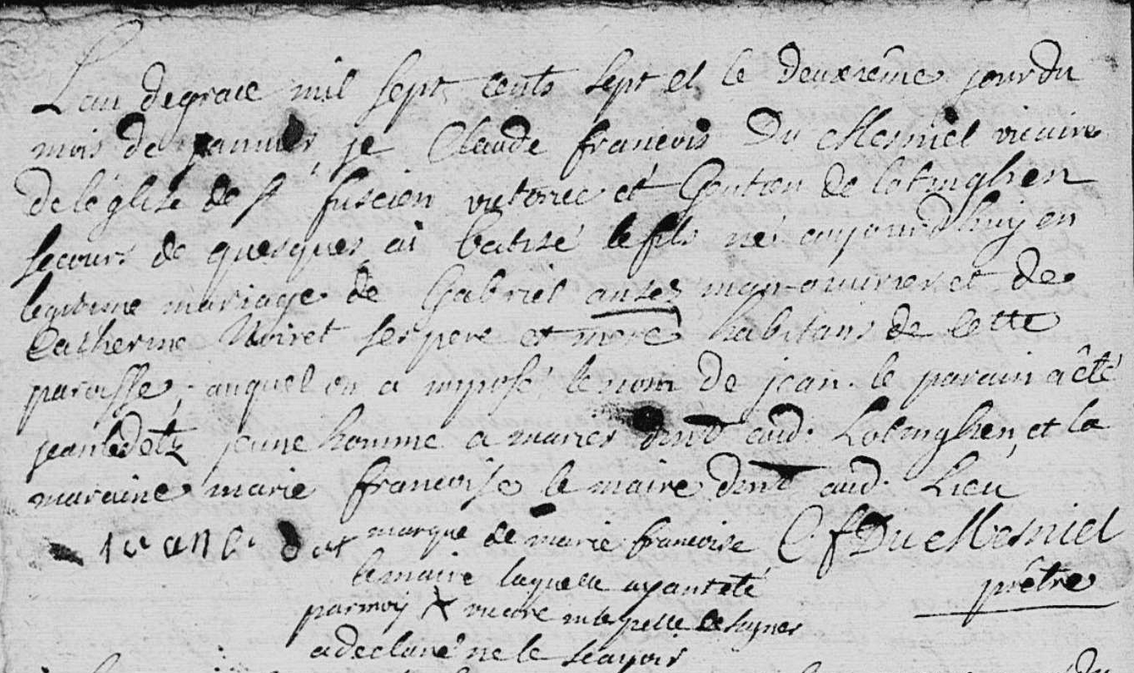 L'an de grace mil sept cents sept et le deuxieême jour du
mois de janvier, je Claude francois Du Mesniel vicaire
de l'église de st fuscien victoric et Gentien de lotinghen
secours de quesques ai batisé le fils né aujourdhuy en
legitime mariage de Gabriel ansez manouvrier et de
Catherine Noiret ses pere et mere habitans de cette
paroisse, auquel on a imposé le nom de jean. le parain a êté
jean ledetz jeune homme a marier dmt aud. Lotinghen, et la
maraine marie francoise le maire dmt aud. Lieu
marque de marie francoise C f Du Mesniel
lemaire laquelle ayant eté prêtre
par moy vicaire interpellé de signer
a declaré ne le scavoir